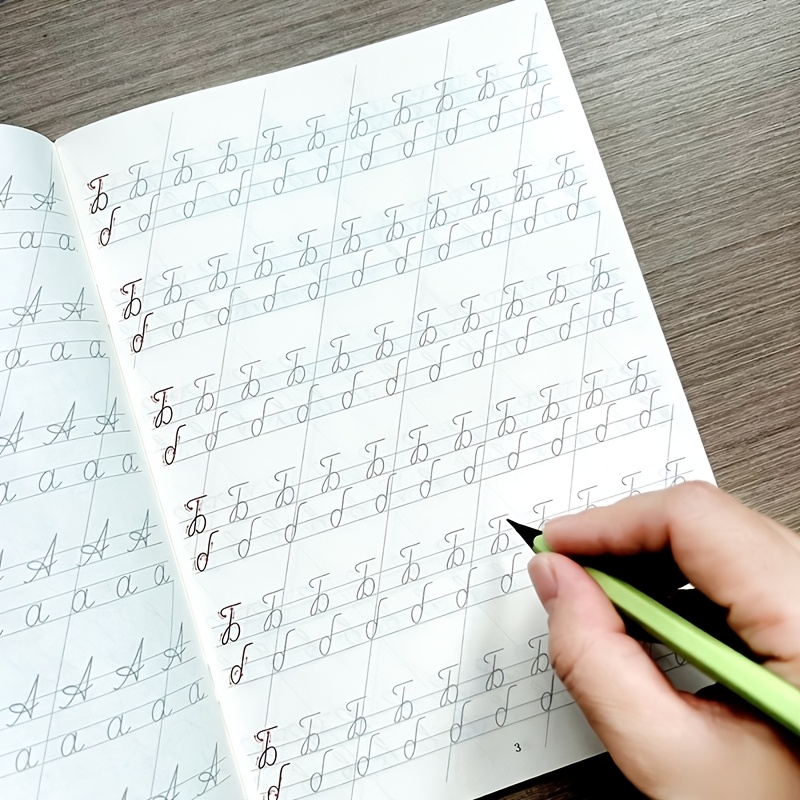 А А
а а
А А
а а а
А А А
а а а а
А А А
а а а а
А А А А
а а а а а
А А
Б Б Б Б Б Б Б Б Б Б Б
б б б б б б б б б б б
Б Б Б Б Б Б Б Б Б Б Б
б б б б б б б б б б б
Б Б Б Б Б Б Б Б Б Б Б
б б б б б б б б б б б
Б Б Б Б Б Б Б Б Б Б Б
б б б б б б б б б б б
Б Б Б Б Б Б Б Б Б Б Б
б б б б б б б
Б Б Б Б Б Б Б
б б б б б б б
3